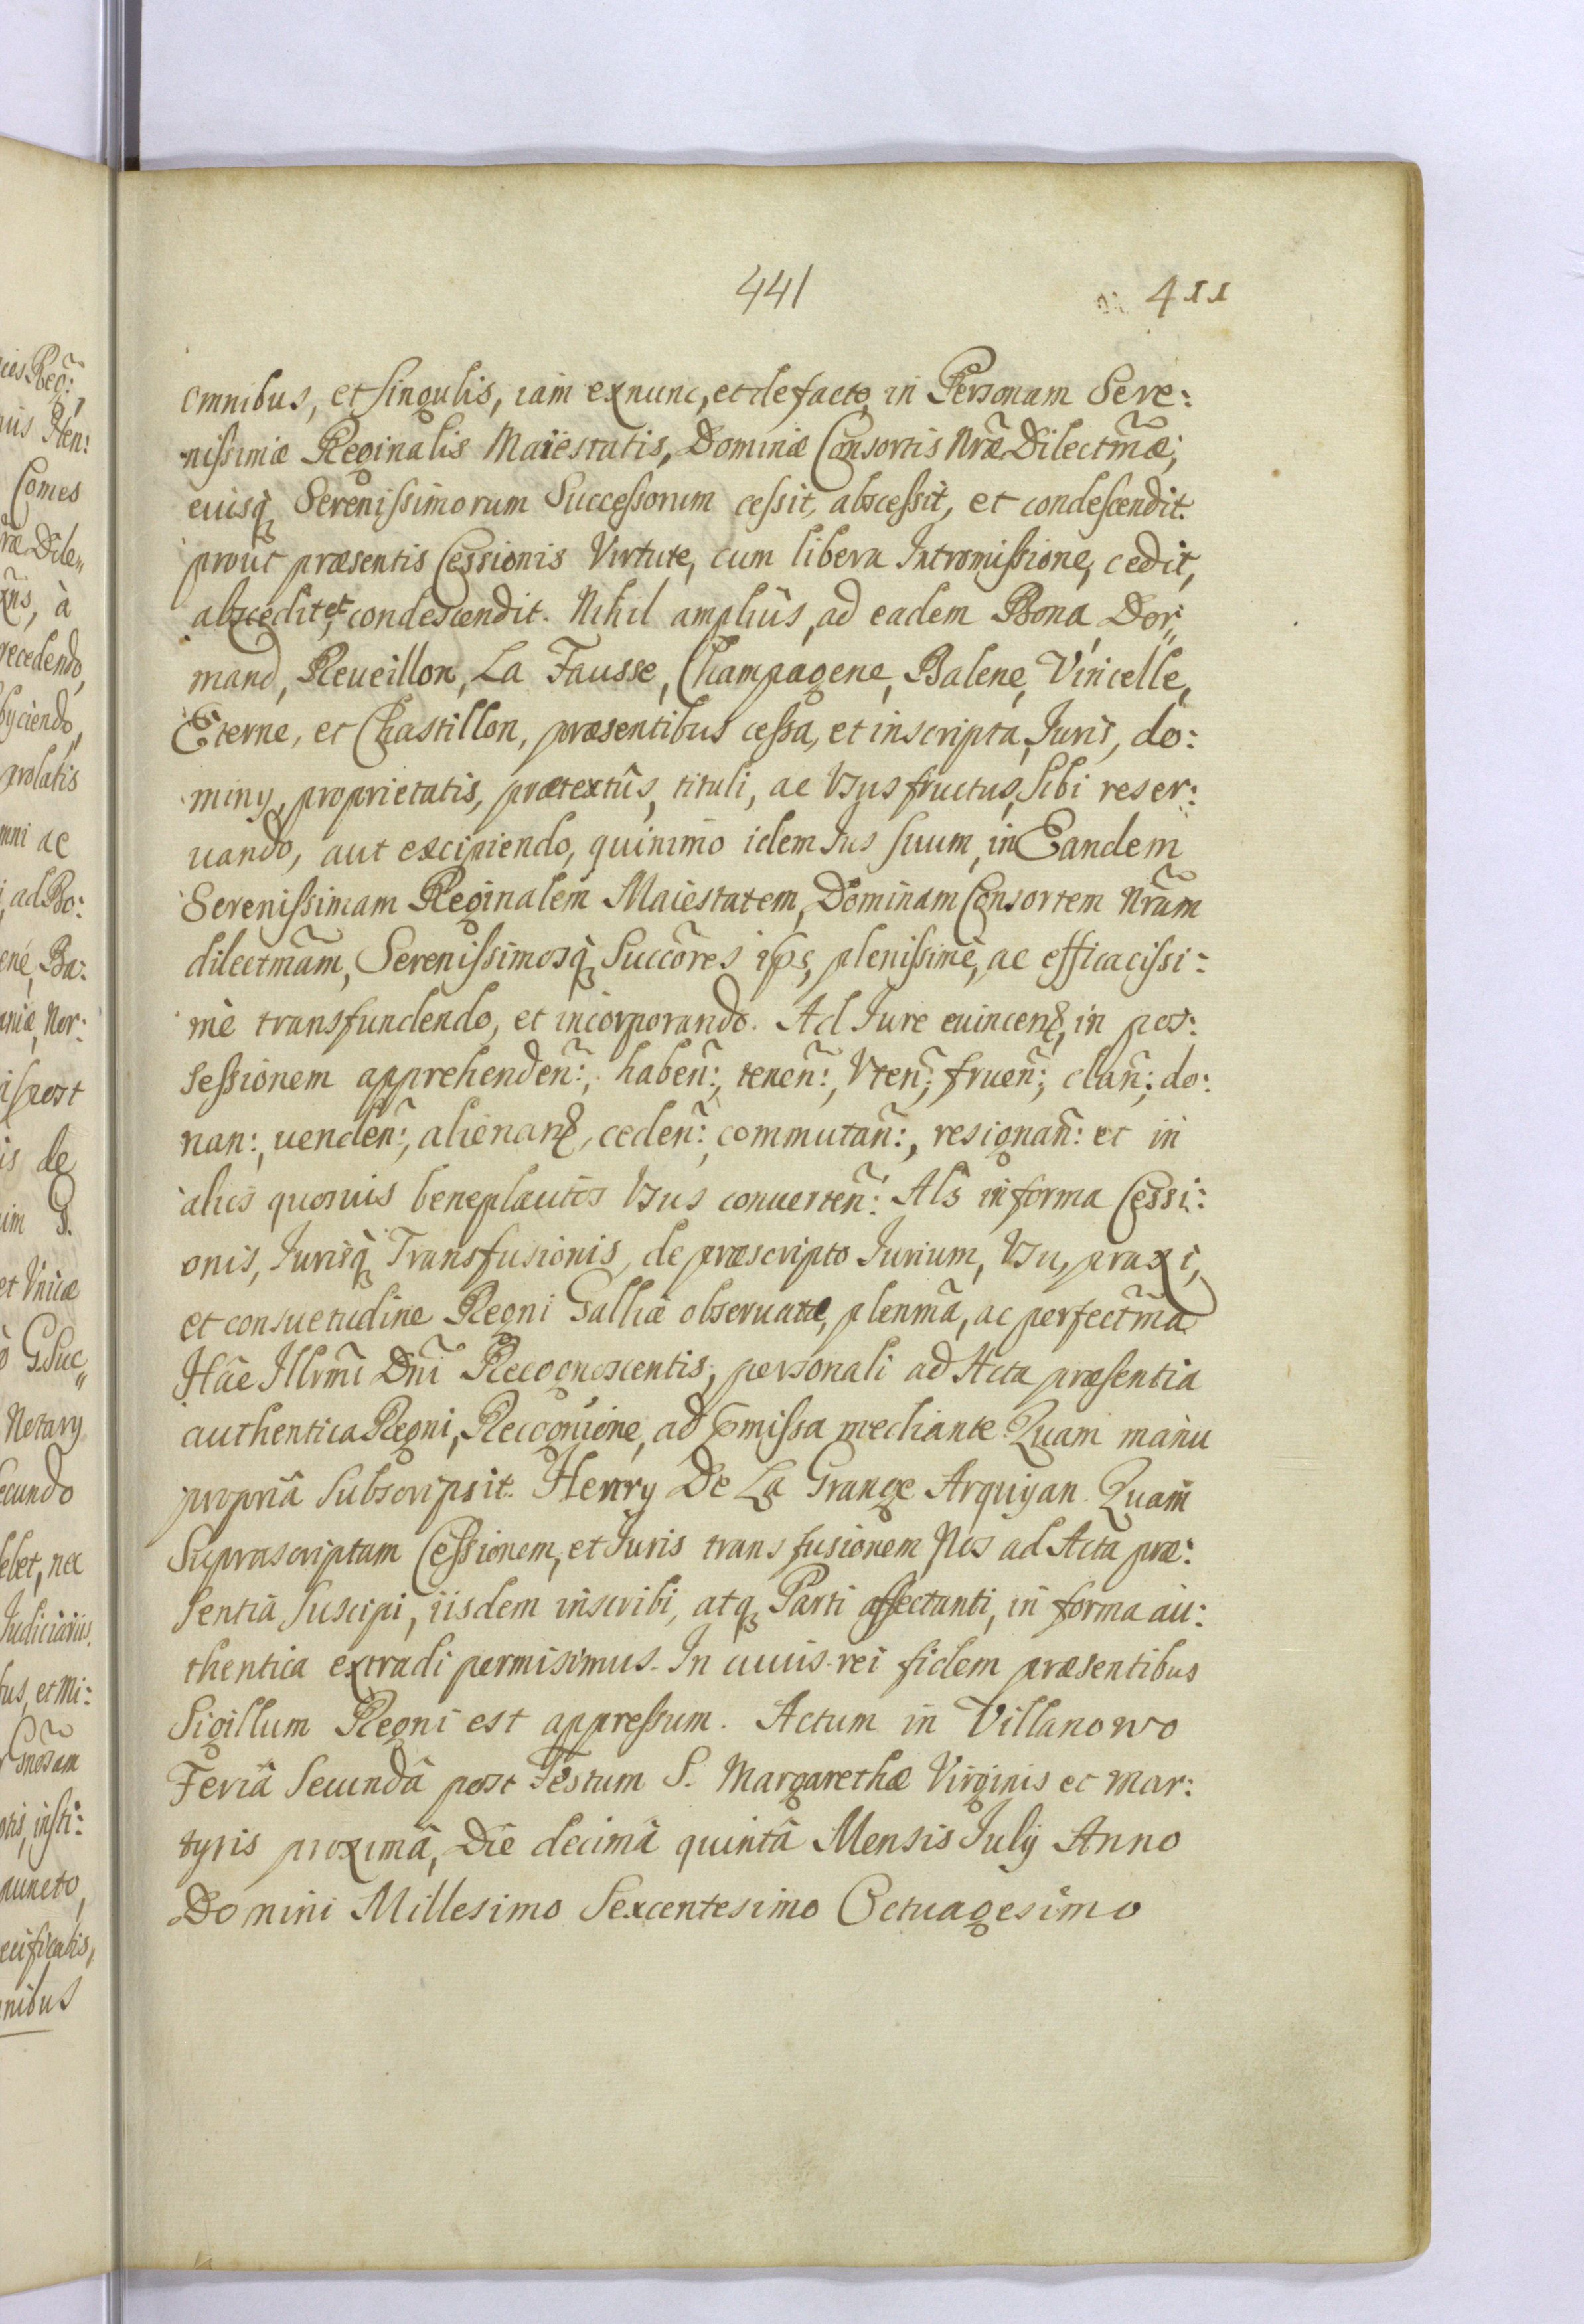 441
411
omnibus, et singulis, iam exnunc, et de facto, in Personam Sere:
nissimæ Reginalis Maiestatis, Dominæ Consortis Nræ Dilectmæ,
eiusq Serenissimorum Successorum cessit, abscessit, et condescendit.
prout præsentis Cessionis Virtute, cum libera Intromissione, cedit,
abscedit, et condescendit. Nihil ampliùs, ad eadem Bona Dor„
mand, Reueillon, La Fausse, Champagene, Balene, Vincelle,
Eterne, et Chastillon, præsentibus cessa, et inscripta, Juris, do:
miny, proprietatis, prætextûs, tituli, ac Vsusfructus, sibi reser:
uando, aut excipiendo, quinimo idem Jus suum, in Eandem
Serenissimam Reginalem Maiestatem, Dominam Consortem Nram
dilectmam, Serenissimosq Succores ips, plenissimè, ac efficacissi:
mè transfundendo, et incorporando. Ad Jure euincen, in pos:
sessionem apprehenden:, haben:, tenen:, Vten:, fruen:, dan:, do:
nan:, uenden:, alienan, ceden:, commutan:, resignan: et in
alios quosuis beneplacitos Vsus conuerten: Als in forma Cessi:
onis, Jurisq Transfusionis, de præscripto Jurium, Vsu, praxi,
et consuetudine Regni Galliæ obseruatæ, plenma, ac perfectma
Hac Illrmi Dni Recognoscentis, personali ad Acta præsentia
authentica Regni, Recognione, ad pmissa mediante. Quam manu
propriâ subscripsit. Henry De La Grange Arquiyan. Quam
Suprascriptam Cessionem, et Juris transfusionem Nos ad Acta præ:
sentia suscipi, iisdem inscribi, atq Parti affectanti, in forma au:
thentica extradi permisimus. In cuius rei fidem præsentibus
Sigillum Regni est appressum. Actum in Villanowo
Feriâ Secundâ post Festum S. Margarethæ Virginis et Mar:
tyris proximâ, Die decimâ quintâ Mensis July Anno
Domini Millesimo Sexcentesimo Octuagesimo